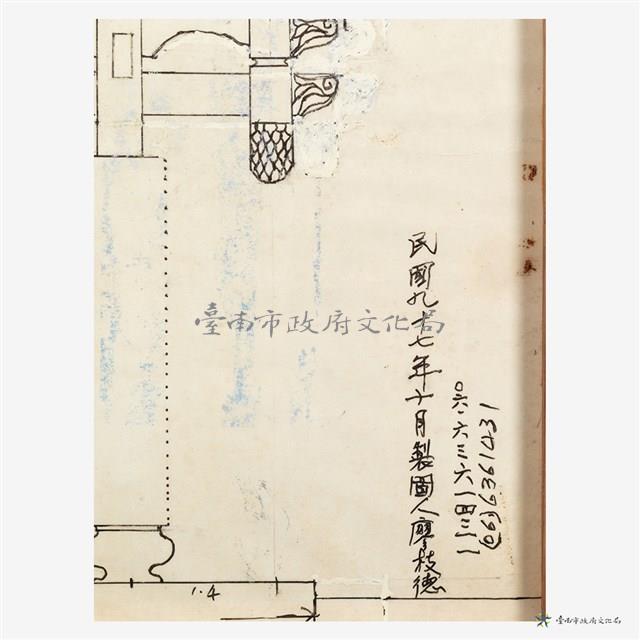 民國九十七年十月製圖人廖枝德
〇六.六三六一四三一
(06)6361431
1.4
臺南市政府文化局
臺南市政府文化局